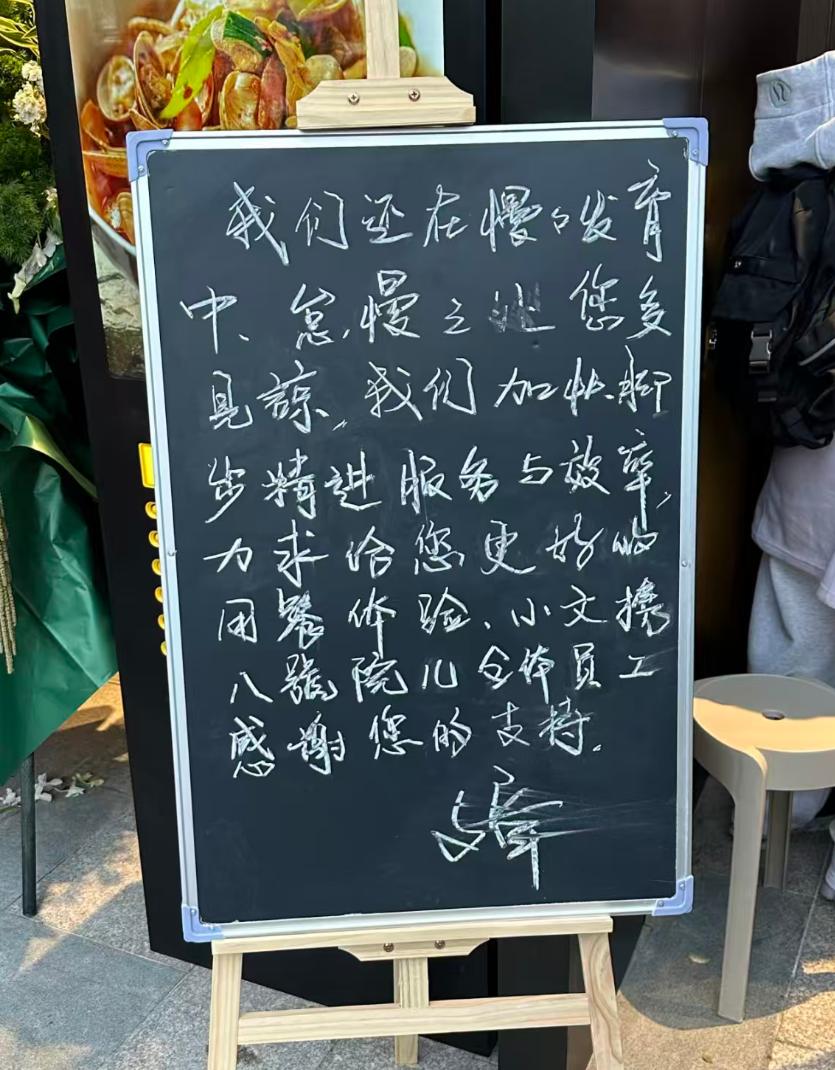 我们还在慢々发育
中、怠慢之处您多
見諒，我们加快脚
步精进服务与效率，
力求给您更好的
用餐体验、小文携
八號院儿全体員工
感谢您的支持.